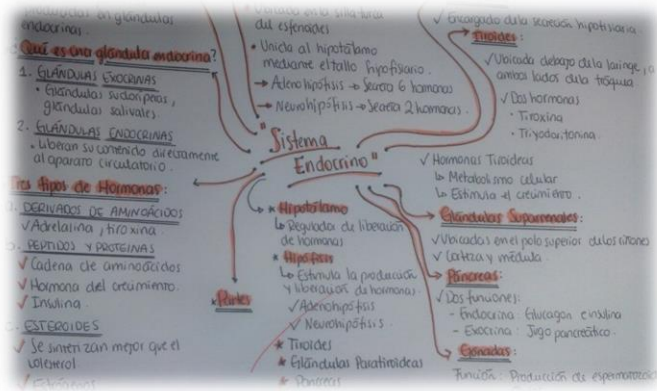 producidas en glándulas
endocrinas.
¿Qué es una glándula endocrina?
1. GLÁNDULAS EXOCRINAS
• Glándulas sudoríparas,
glándulas salivales.
2. GLÁNDULAS ENDOCRINAS
• Liberan su contenido directamente
al aparato circulatorio.
Tres tipos de Hormonas:
DERIVADOS DE AMINOÁCIDOS
✓ Adrelalina, tiroxina.
PEPTIDOS Y PROTEINAS
✓ Cadena de aminoácidos
✓ Hormona del crecimiento.
✓ Insulina.
ESTEROIDES
✓ Se sintetizan mejor que el
colesterol
✓ Estrógenos
"Sistema
Endocrino"
• Ubicada en la silla turca
del esfenoides
• Unida al hipotálamo
mediante el tallo hipofisiario.
→ Adenohipófisis → Secreta 6 hormonas
→ Neurohipófisis → Secreta 2 hormonas.
* Partes
* Hipotálamo
↳ Regulador de liberación
de hormonas
* Hipófisis
↳ Estimula la producción
y liberación de hormonas
✓ Adenohipófisis
✓ Neurohipófisis.
* Tiroides
* Glándulas Paratiroideas
* Páncreas
✓ Encargado de la secreción hipofisiaria.
Tiroides:
✓ Ubicada debajo de la laringe, a
ambos lados de la tráquea
✓ Dos hormonas
• Tiroxina
• Triyodoritonina.
✓ Hormonas Tiroideas
↳ Metabolismo celular
↳ Estimula el crecimiento.
Glándulas Suprarrenales:
✓ Ubicadas en el polo superior de los riñones
✓ Corteza y médula.
Páncreas:
✓ Dos funciones:
- Endocrina Glucagon e insulina
- Exocrina: Jugo pancreático.
Gonadas:
Función: Producción de espermatozoi